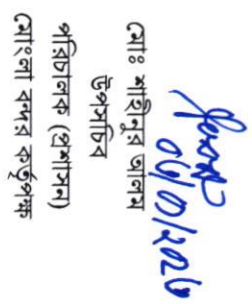 ০৬/০১/২০২৬
মোঃ শাহীনুর আলম
উপসচিব
পরিচালক (প্রশাসন)
মোংলা বন্দর কর্তৃপক্ষ